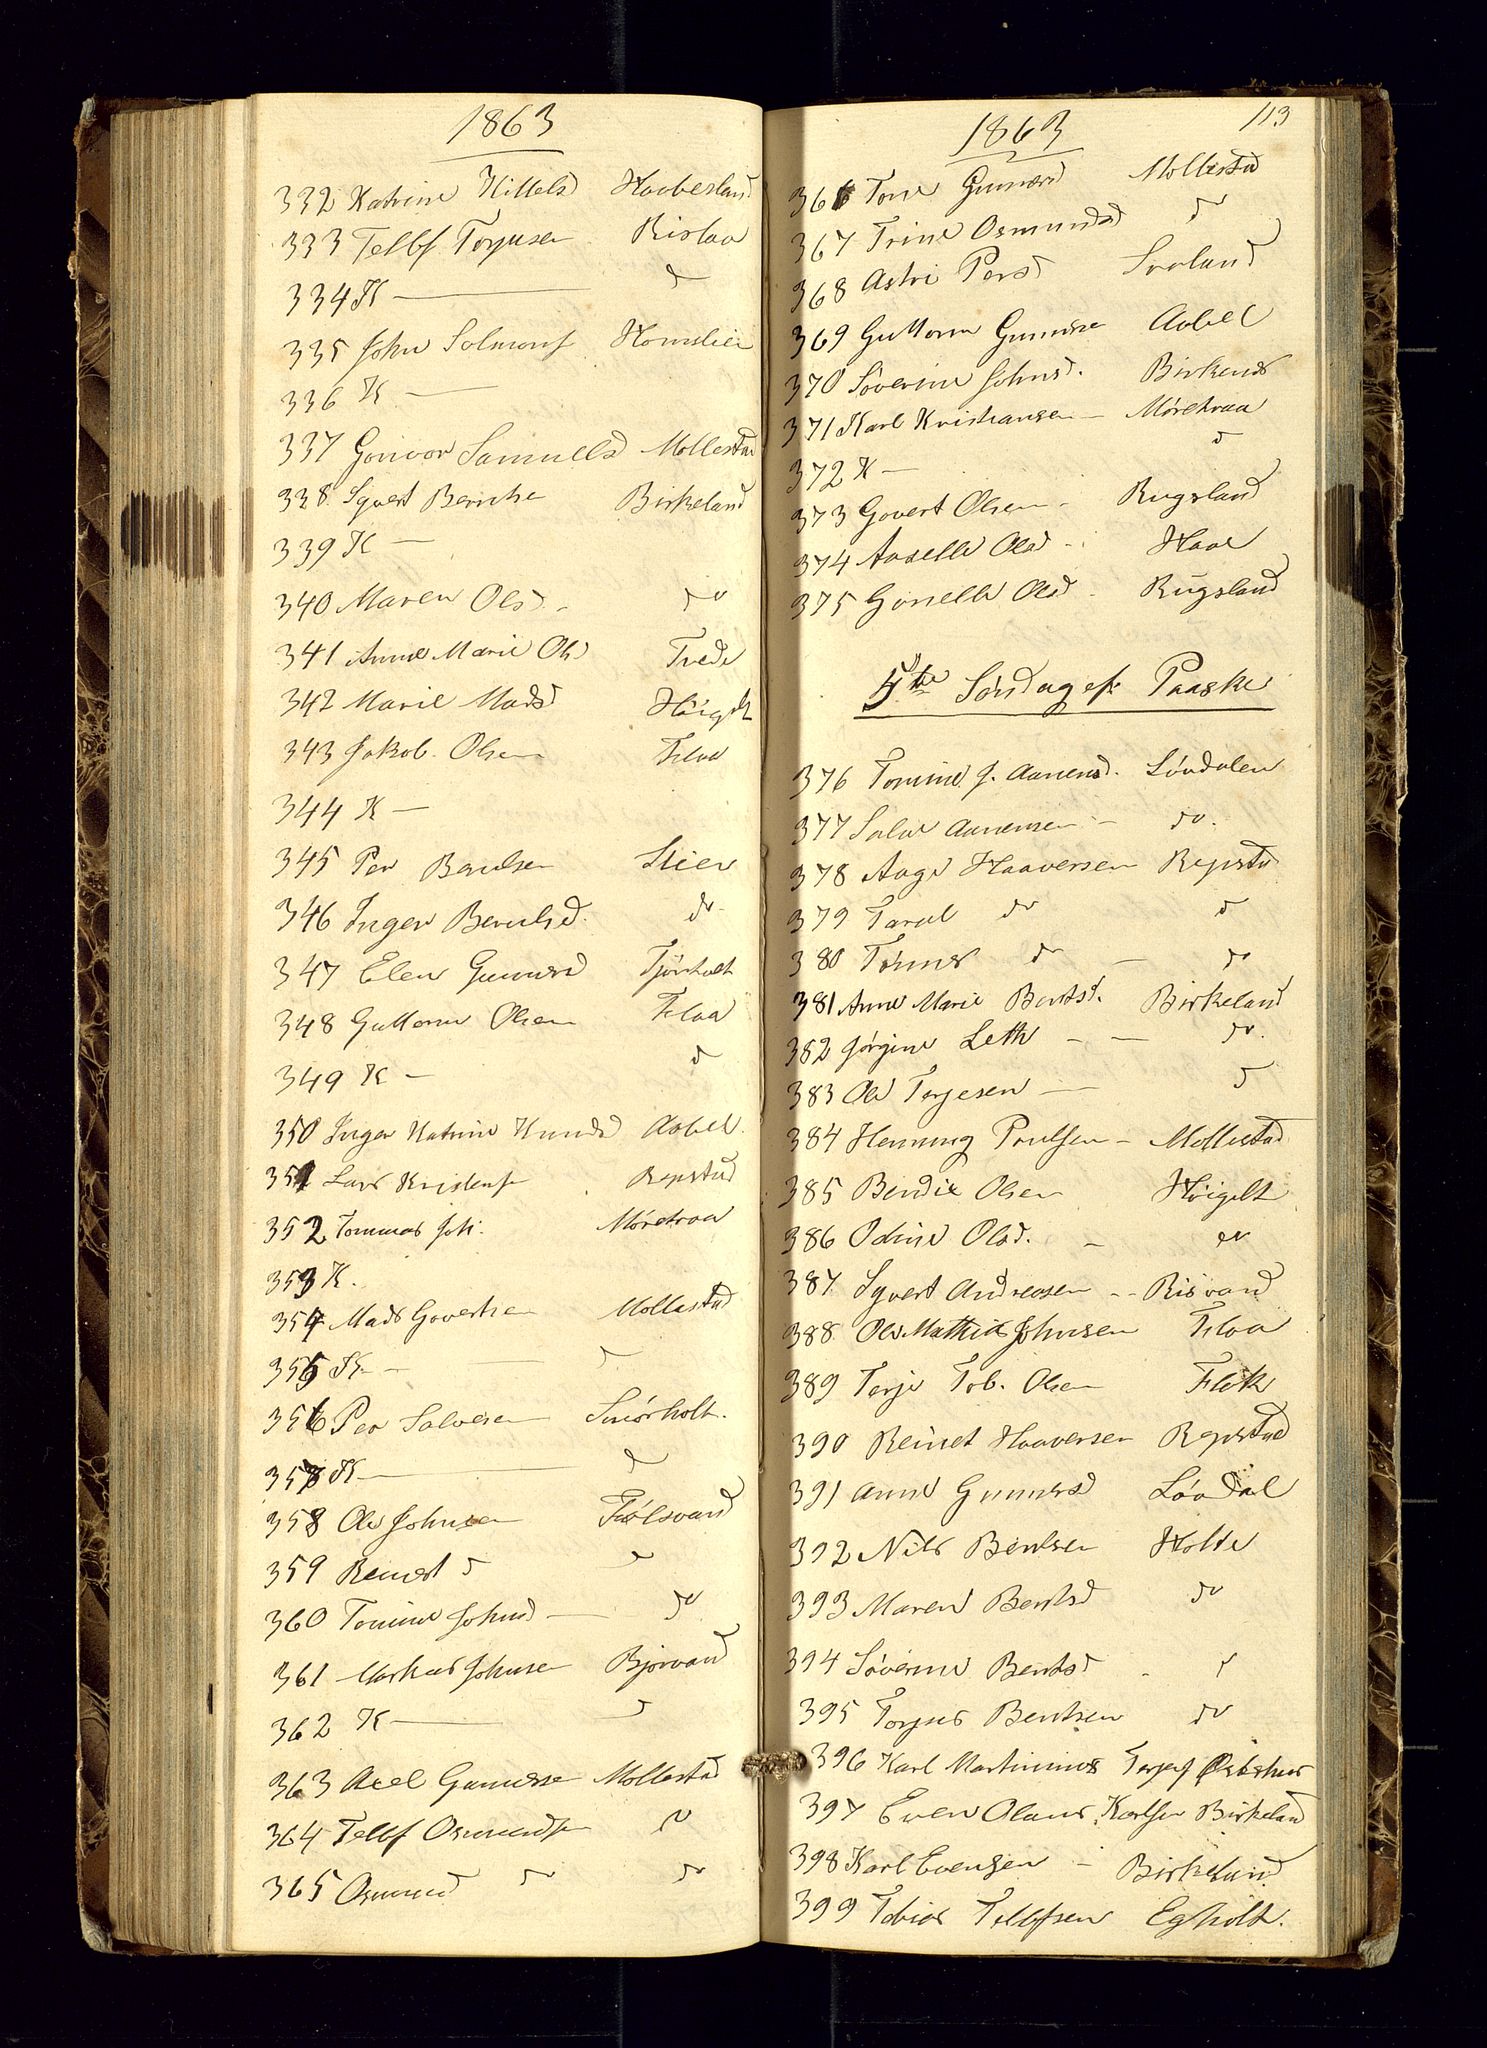 1863
332 Katrine Kittelsd Haabesland
333 Tellef Torjusen Rislaa
334 K — d
335 John Solmonf Homslien
336 K —
337 Gunvor Samuelsd Mollestad
338 Syvert Berntse Birkeland
339 K —
340 Maren Olsd. do
341 Anne Marie Olsd Tvede
342 Marie Madsd Höigilt
343 Jakob Olsen Flaa
344 K —
345 Per Berulsen Stien
346 Inger Berulsd. do
347 Elen Gunnersd Tjönholt
348 Guttorm Olsen Flaa
349 K — d
350 Inger Katrine Knudsd Aabel
351 Lars Kristensf Repstad
352 Tommas Joh. Möretraa
353 K.
354 Mads Govertsen Mollestad
355 K — d
356 Per Salvesen Smörholt.
357 K — d
358 Ole Johnsen Fiölsvand
359 Reinert d d
360 Tomine Johnsd — do
361 Markus Johnsen Bjorvand
362 K — d
363 Axel Gunnersse Mollestad
364 Tellf Osmundsen do
365 Osmund do do
113
1863
366 Tone Gunnersd Mollestad
367 Trine Osmundsd d
368 Astri Persd Svaland
369 Guttorm Gunnersse Aabel
370 Söverine Johnsd. Birkenes
371 Karl Kristiansen — Möretraa
372 K — d
373 Govert Olsen — Rugsland
374 Aaselle Olsd — Haae
375 Gunelle Olsd — Rugsland
5te Söndag ef. Paaske
376 Tomine J. Aanensd. Lövdalen
377 Salve Aanensen — do.
378 Aage Haaversen Repstad
379 Taral do d
380 Tönnes do — do
381 Anne Marie Bentsd. Birkeland
382 Jörgine Leth — — do.
383 Ole Terjesen — d
384 Henning Poulsen — Mollestad
385 Bendix Olsen Höigilt
386 Odine Olsd. — do
387 Syvert Andreasen — Risvand
388 Ole Mathias Johnsen Flaa
389 Terje Tob. Olsen Flak
390 Reinert Haaversen Repstad
391 Anne Gunnersd Lövdal
392 Nils Bentsen Holte
393 Maren Bentsd do
394 Söverine Bentsd — d
395 Torjus Bentsen do
396 Karl Martinius Terjesf Östhus
397 Even Olaus Karlsen Birkeland
398 Karl Evensen — Birkeland
399 Tobias Tellefsen Egholt.